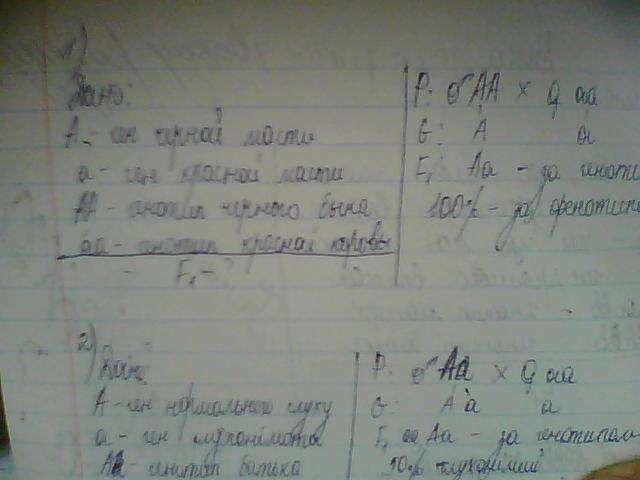 1)
Дано:
А - ген чорной масти
а - ген красной масти
АА - генотип черного быка
аа - генотип красной коровы
F₁ -
P: ♂ АА × ♀ аа
G: А а
F₁ Аа - за генотип
100% - за фенотипо
2) Дано:
А - ген нормального слуху
а - ген глухонімоти
Аа - генотип батька
P: ♂ Аа × ♀ аа
G: А а а
F₁ аа, Аа - за генотипом
50% глухонімий